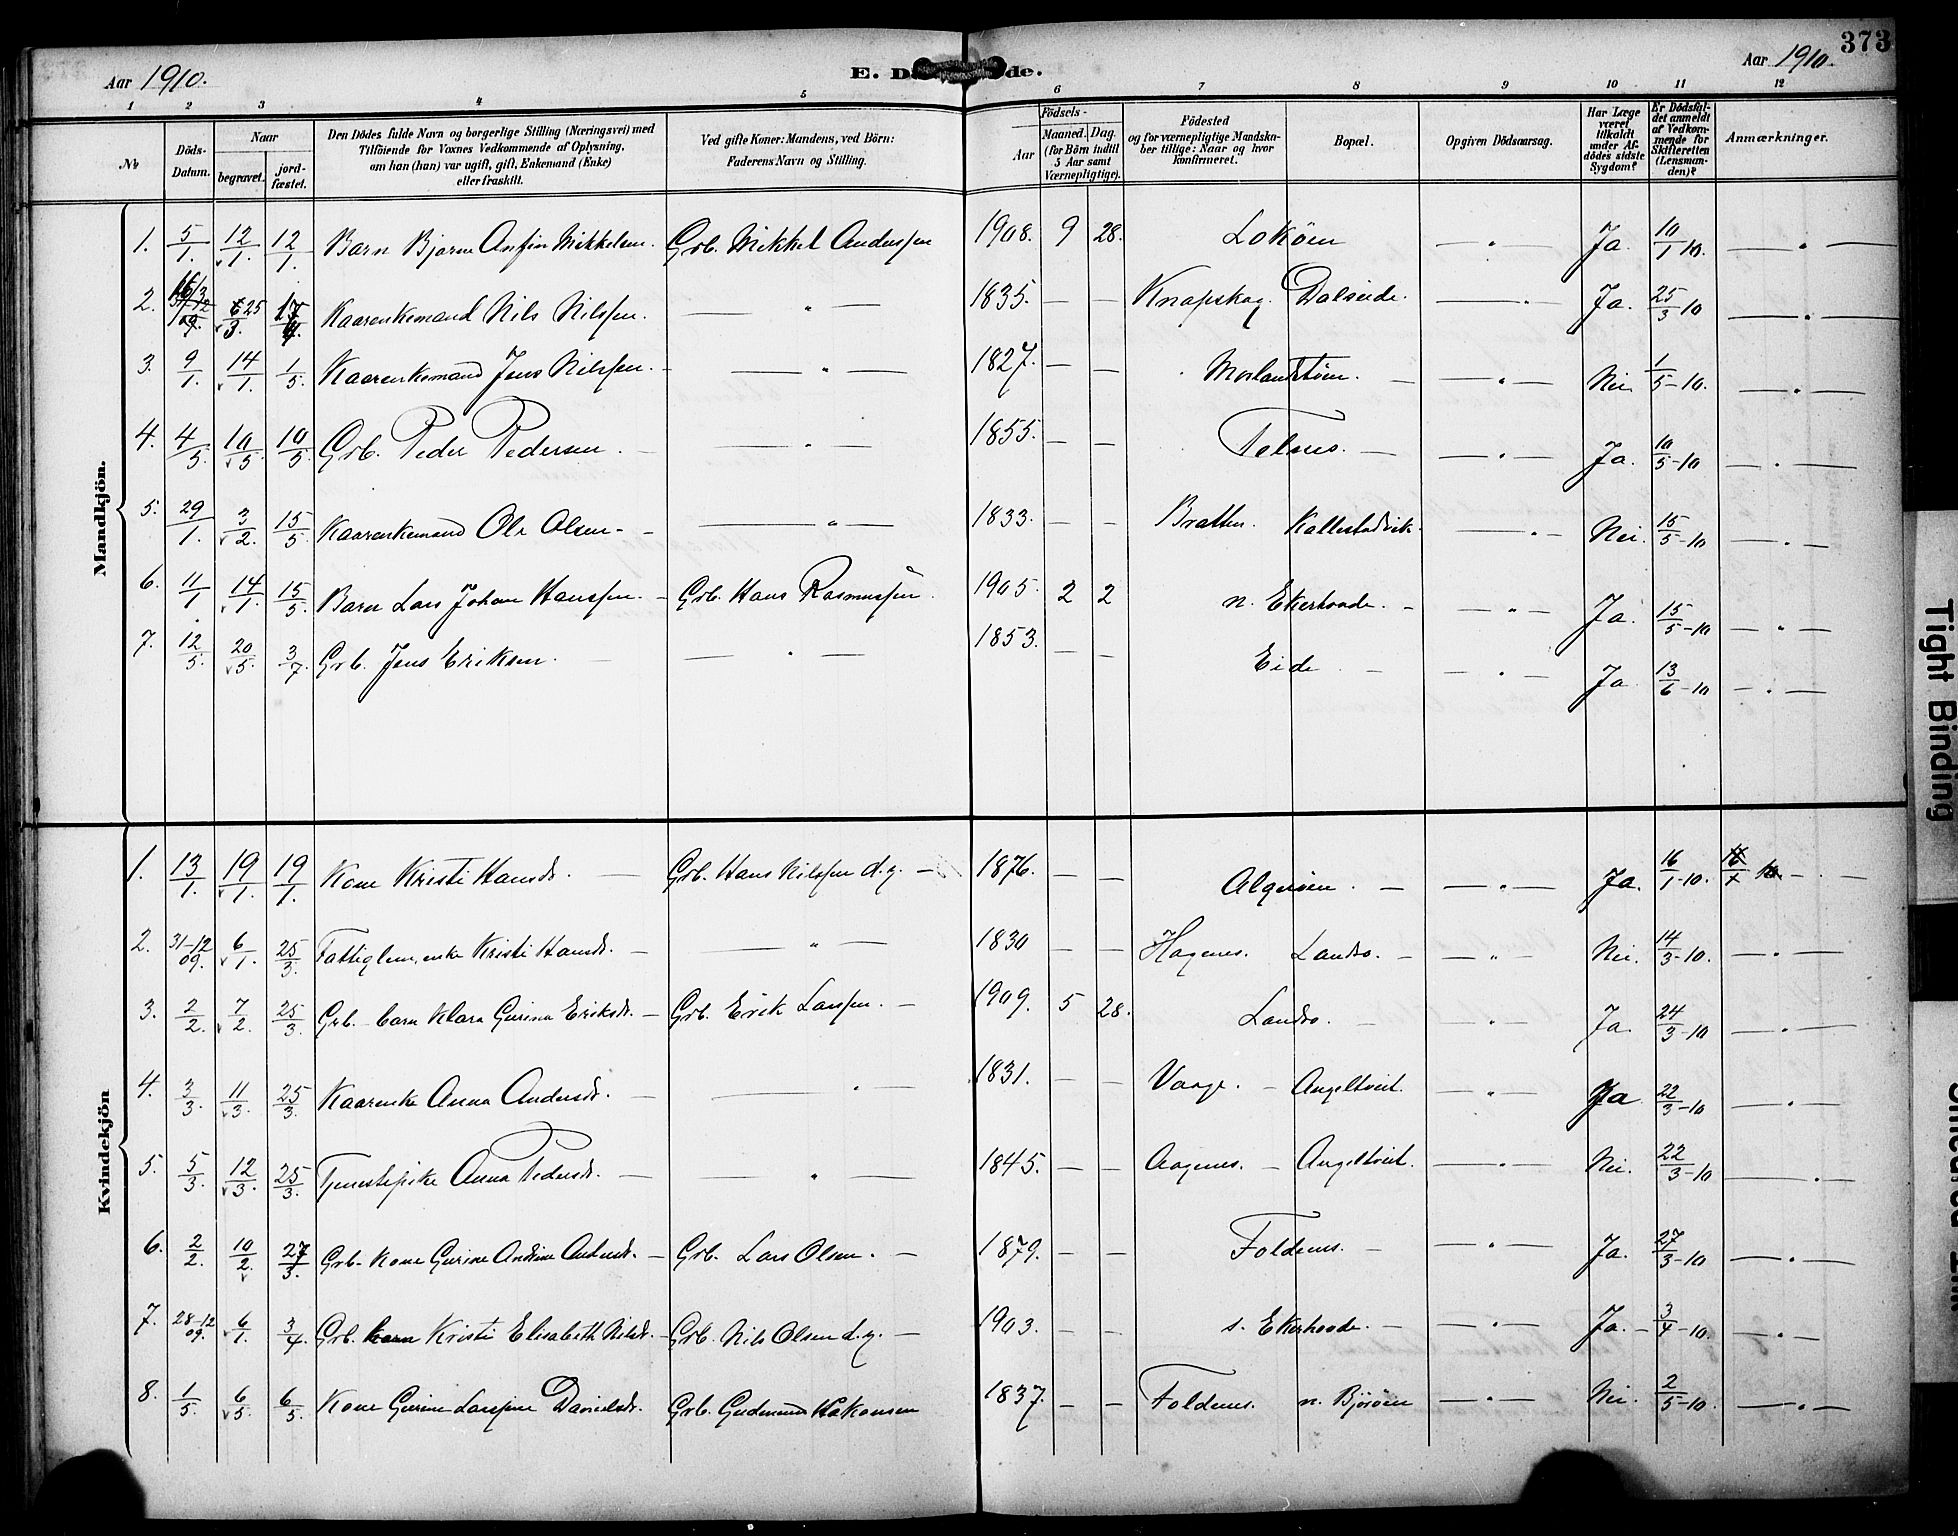 373
Aar 1910. E. D de. Aar 1910.
1 2 3 4 5 6 7 8 9 10 11 12
No Döds-Datum. Naar begravet. jordfæstet. Den Dödes fulde Navn og borgerlige Stilling (Næringsvei) med Tilföiende for Voxnes Vedkommende af Oplysning, om han (hun) var ugift, gift, Enkemand (Enke) eller fraskilt. Ved gifte Koner: Mandens, ved Börn: Faderens Navn og Stilling. Födsels- Aar Maaned. Dag. (for Börn indtil 5 Aar samt Værnepligtige). Födested og for værnepligtige Mandskaber tillige: Naar og hvor konfirmeret. Bopæl. Opgiven Dödsaarsag. Har Læge været tilkaldt under Afdödes sidste Sygdom? Er Dödsfaldet anmeldt af Vedkommende for Skifteretten (Lensmanden)? Anmærkninger.
Mandkjön.
1. 5/1. 12/1. 12/1. Barn Bjarne Anfin Mikkelsen. Grb. Mikkel Anderssen 1908. 9 28. Lokøen — " — Ja. 10/1 10. — " —
2. 25/3. Kaarenkemand Nils Nilssen. — " — 1835. — — Knapskog. Dalseide. — " — Ja. 25/3 10 — " —
3. 9/1. 14/1. 1/5. Kaarenkemand Jens Nilssen. — " — 1827. — — Morlandstøen. — " — Nei. 1/5-10. — " —
4. 4/5. 10/5. 10/5. Grb. Peder Pedersen. — " — 1855. — — Telnes. — " — Ja. 10/5-10 — " —
5. 29/1. 3/2. 15/5. Kaarenkemand Ole Olsen. — " — 1833. — — Bratten. Kallestadvik. — " — Nei. 15/5-10 — " —
6. 11/1 14/1. 15/5. Barn Lars Johan Hanssen. — Grb. Hans Rasmussen. 1905. 2 2 n. Ekerhovde. — " — Ja. 15/5-10 — " —
7. 12/5. 20/5. 3/7. Grb. Jens Eriksen. — " — 1853. — — Eide — " — Ja 13/6-10 — " —
Kvindekjön
1. 13/1. 19/1. 19/1. Kone Kristi Hansdr. — Grb. Hans Nilssen d.y. — 1876. — — Algerøen. — " — Ja. 16/1-10. — " —
2. 31-12/09. 6/1. 25/3. Fattiglem, enke Kristi Hansdr. — " — 1830 — — Hagenes. Landro. — " — Nei. 14/3-10. — " —
3. 2/2. 7/2. 25/3. Grb.-barn Klara Gurina Eriksdr. — Grb. Erik Larssen. — 1909. 5 28. Landro. — " — Ja. 24/3-10 — " —
4. 3/3. 11/3. 25/3. Kaarenke Anna Andersdr. — " — 1831. — — Vaage. — Angeltveit. — " — Ja 22/3-10 — " —
5. 5/3. 12/3. 25/3. Tjenestepike Anna Pedersdr. — " — 1845. — — Aagenes. — Angeltveit. — " — Nei. 22/3-10 — " —
6. 2/2. 10/2. 27/3. Grb.-kone Gurine Andrine Andersdr. — Grb. Lars Olsen. — 1879. — — Foldenes. — " — Ja. 27/3-10 — " —
7. 28-12/09. 6/1. 3/4. Grb. barn Kristi Elisabeth Nilsdr. — Grb. Nils Olsen d.y. — 1903. — — s. Ekerhovde. — " — Ja. — 3/4-10. — " —
8. 1/5. 6/5. 6/5. Kone Gurine Larsine Danielsdr. Grb. Gudmund Hakonsen 1837. — — Foldenes. n. Bjorøen — " — Nei. 2/5-10. — " —
Tight Binding